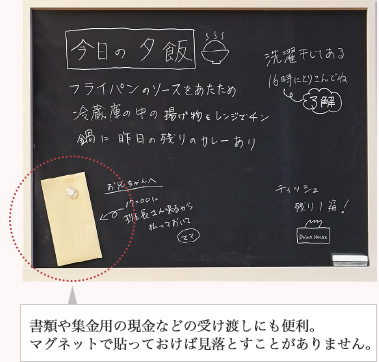 今日の夕飯
フライパンのソースをあたため
冷蔵庫の中の揚げ物をレンジでチン
鍋に昨日の残りのカレーあり
洗濯干してある
16時にとりこんでね
了解
お兄ちゃんへ
17:00に
班長さん来るから
払っておいて
ママ
ティッシュ
残り1箱!
書類や集金用の現金などの受け渡しにも便利。
マグネットで貼っておけば見落とすことがありません。